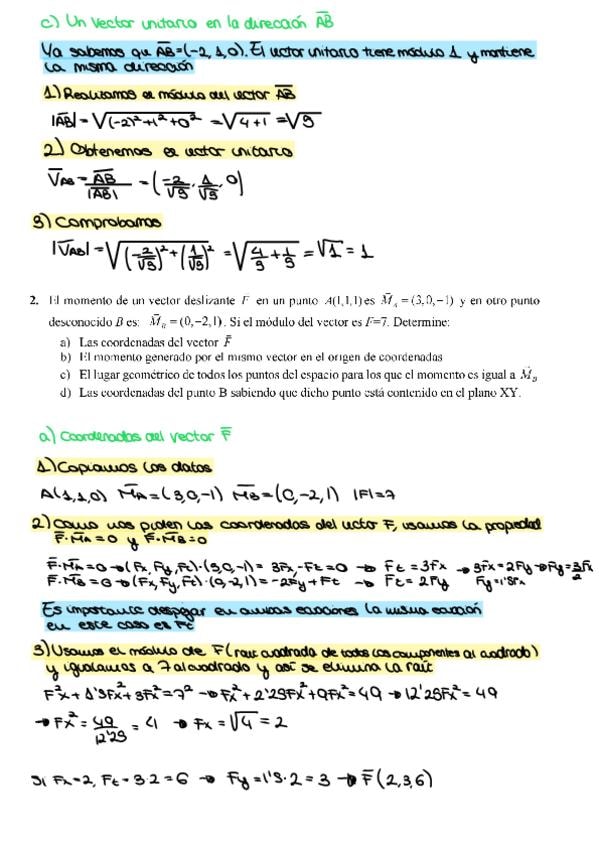 c) Un vector unitario en la dirección AB
Ya sabemos que AB=(-2, 1, 0). El vector unitario tiene módulo 1 y mantiene
la misma dirección
1) Realizamos el módulo del vector AB
|AB| = √(-2)²+1²+0² = √4+1 = √5
2) Obtenemos el vector unitario
V̄AB = AB/|AB| = (-2/√5, 1/√5, 0)
3) Comprobamos
|V̄AB| = √(-2/√5)²+(1/√5)² = √4/5+1/5 = √1 = 1
2. El momento de un vector deslizante F̄ en un punto A(1,1,1) es M̄A = (3,0,−1) y en otro punto
desconocido B es: M̄B = (0,−2,1). Si el módulo del vector es F=7. Determine:
a) Las coordenadas del vector F̄
b) El momento generado por el mismo vector en el origen de coordenadas
c) El lugar geométrico de todos los puntos del espacio para los que el momento es igual a M̄B
d) Las coordenadas del punto B sabiendo que dicho punto está contenido en el plano XY.
a) Coordenadas del vector F̄
1) Copiamos los datos
A(1,1,0) M̄A=(3,0,-1) M̄B=(0,-2,1) |F|=7
2) Como nos piden las coordenadas del vector F, usamos la propiedad
F̄·M̄A=0 y F̄·M̄B=0
F̄·M̄A=0→(Fx,Fy,Fz)·(3,0,-1)= 3Fx-Fz=0 → Fz=3Fx → 3Fx=2Fy→Fy=3Fx/2
F̄·M̄B=0→(Fx,Fy,Fz)·(0,-2,1)=-2Fy+Fz → Fz=2Fy Fy=1'5Fx
Es importante despejar en ambas ecuaciones la misma
en este caso es Fz
3) Usamos el módulo de F (raíz cuadrada de todos los componentes al cuadrado)
y igualamos a 7 al cuadrado y así se elimina la raíz
F²x+1'5Fx²+3Fx²=7² →Fx²+2'25Fx²+9Fx²=49 →12'25Fx²=49
→Fx²=49/12'25=4 → Fx=√4=2
Si Fx=2, Fz=3·2=6 → Fy=1'5·2=3 → F̄(2,3,6)